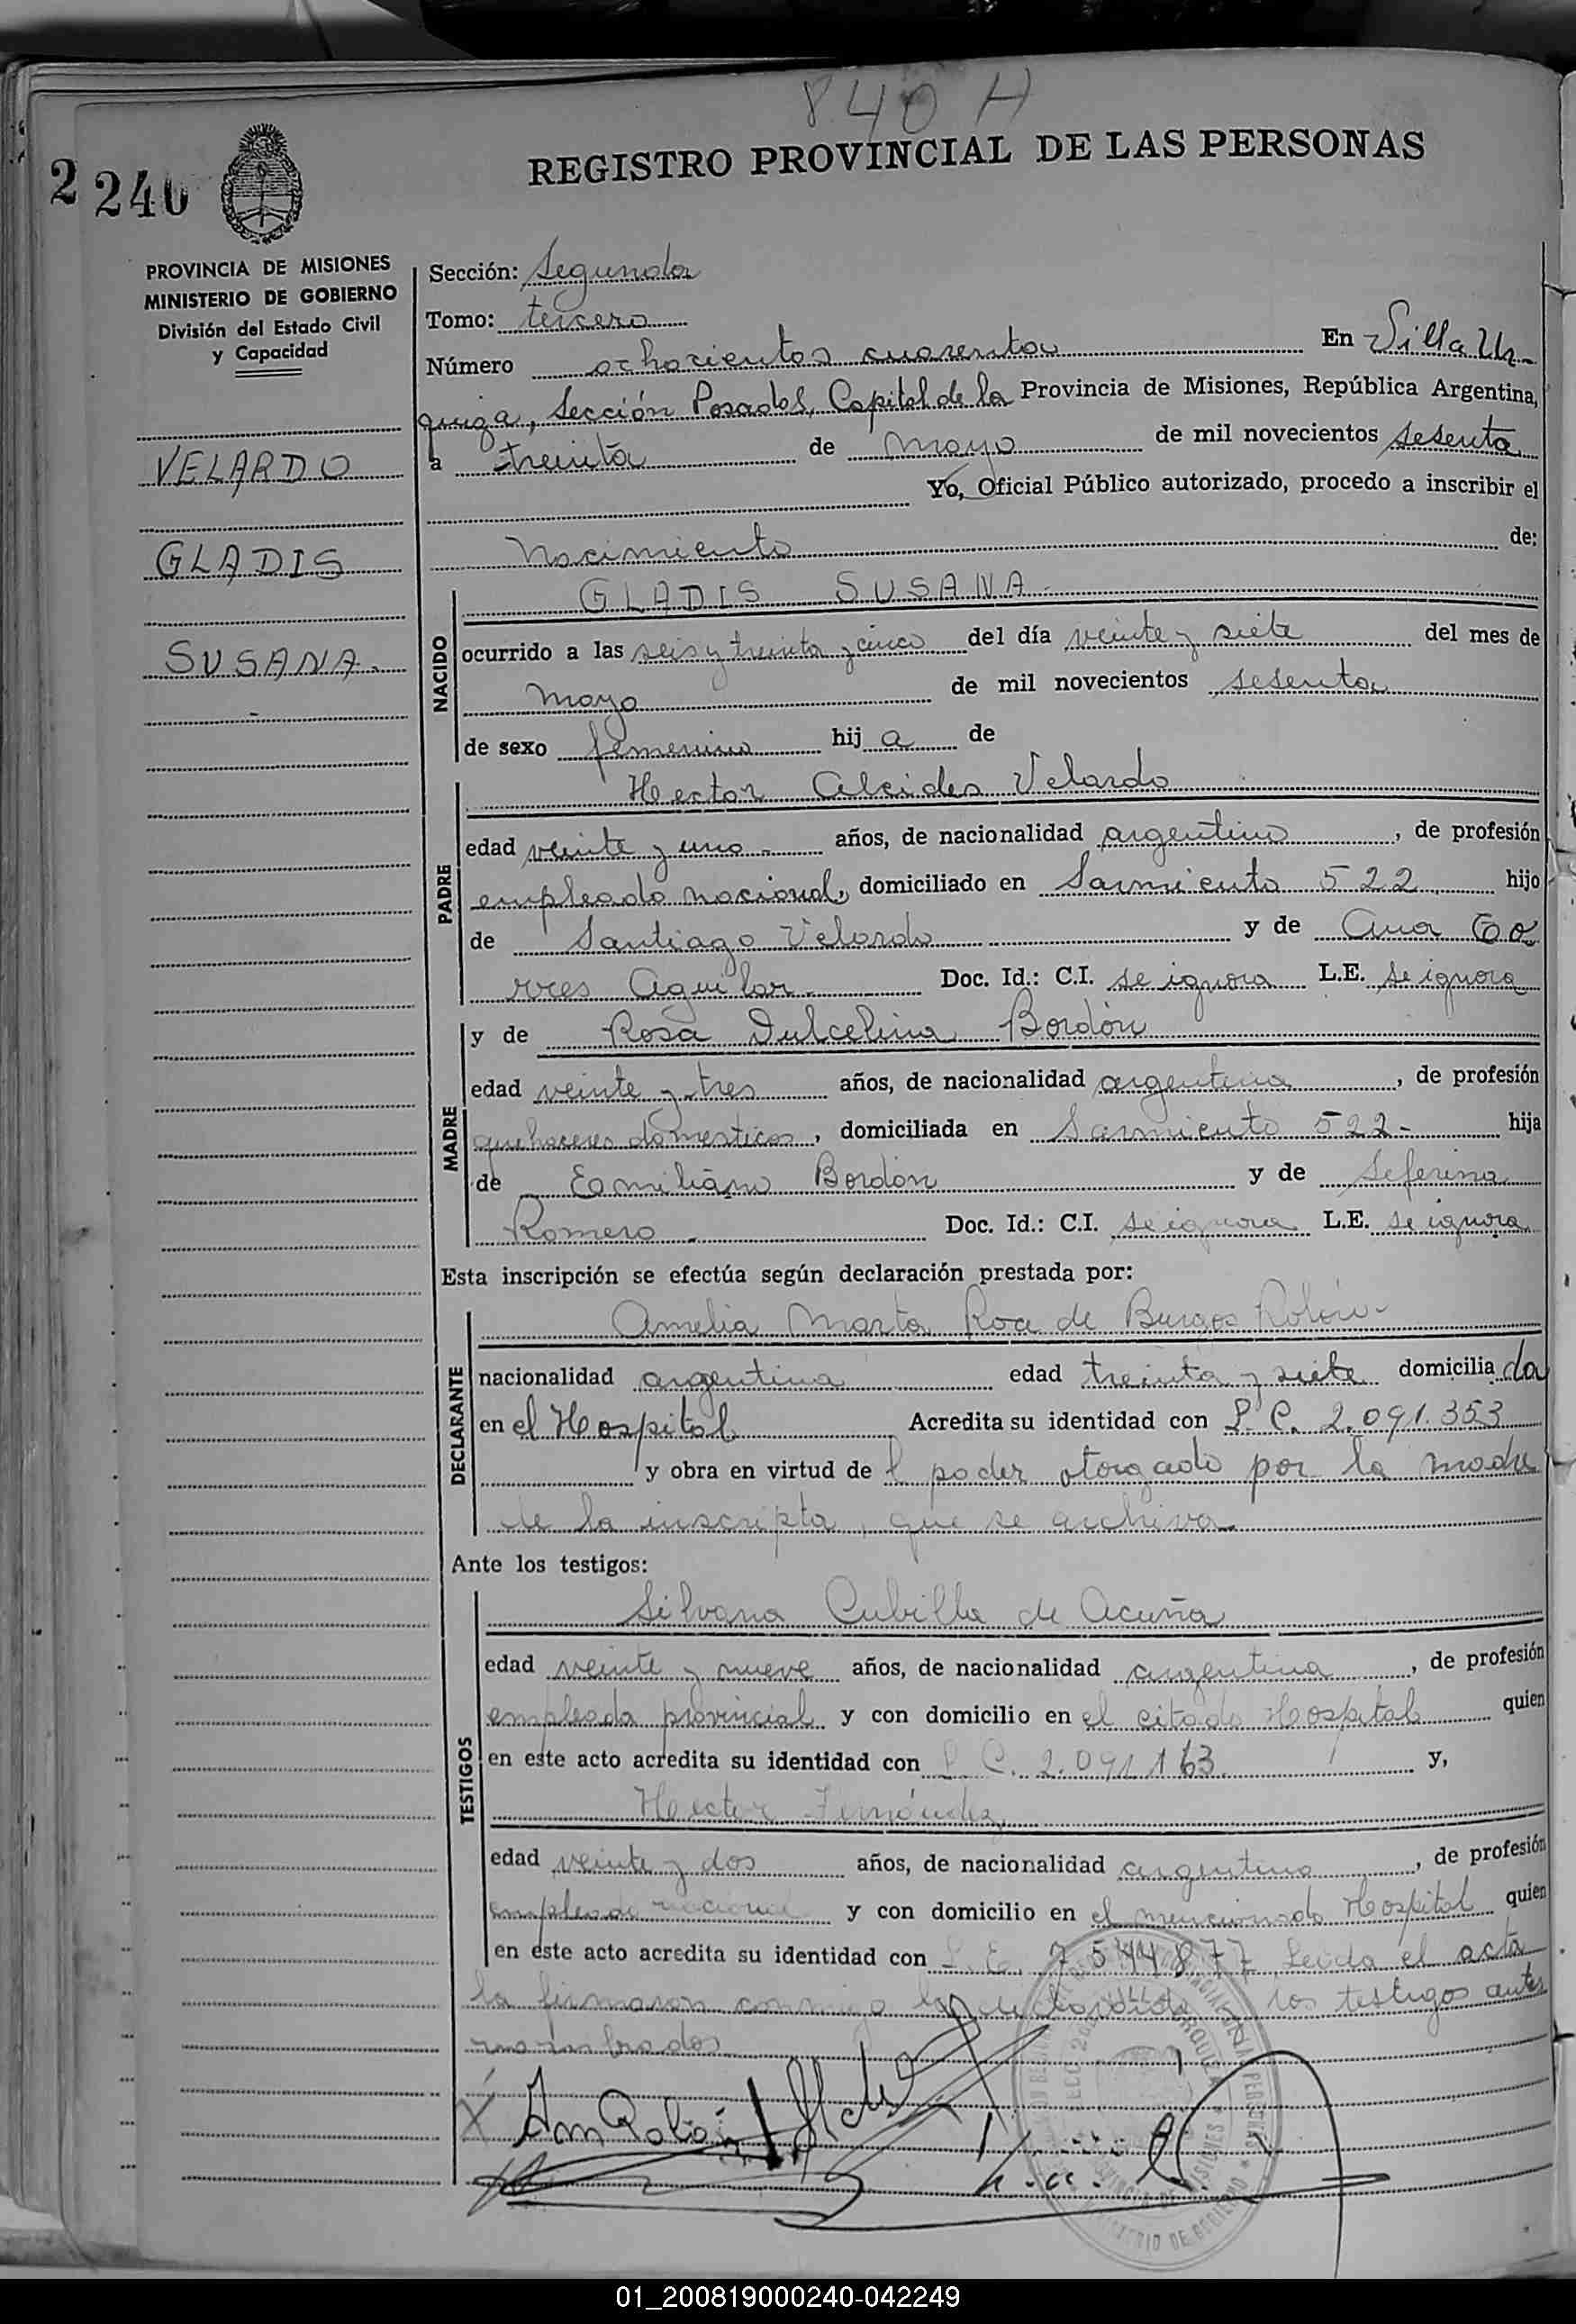 840 H
2 240
REGISTRO PROVINCIAL DE LAS PERSONAS
PROVINCIA DE MISIONES
MINISTERIO DE GOBIERNO
División del Estado Civil
y Capacidad
VELARDO
GLADIS
SUSANA.
Sección: Segunda
Tomo: tercero
Número ochocientos cuarenta En Villa Ur-
quiza, Sección Posadas, Capital de la Provincia de Misiones, República Argentina,
a treinta de mayo de mil novecientos sesenta
Yo, Oficial Público autorizado, procedo a inscribir el
Nacimiento de:
NACIDO
GLADIS SUSANA.
ocurrido a las seis y treinta y cinco del día veinte y siete del mes de
mayo de mil novecientos sesenta
de sexo femenino hij a de
PADRE
Hector Alcides Velardo
edad veinte y uno años, de nacionalidad argentino, de profesión
empleado nacional, domiciliado en Sarmiento 522 hijo
de Santiago Velardo y de Ana
Aguilar Doc. Id.: C.I. se ignora L.E. se ignora
MADRE
y de Rosa Dulcelina Bordón
edad veinte y tres años, de nacionalidad argentina, de profesión
quehaceres domesticos, domiciliada en Sarmiento 522- hija
de Emiliano Bordón y de Seferina
Romero Doc. Id.: C.I. se ignora L.E. se ignora
Esta inscripción se efectúa según declaración prestada por:
DECLARANTE
Amelia Marta Roa de Burgos Rolón-
nacionalidad argentina edad treinta y siete domicilia da
en el Hospital Acredita su identidad con L.C. 2.091.353
y obra en virtud de l poder otorgado por la madre
de la inscripta, que se archiva.
Ante los testigos:
TESTIGOS
Silvana Cubilla de Acuña
edad veinte y nueve años, de nacionalidad argentina, de profesión
empleada provincial y con domicilio en el citado Hospital quien
en este acto acredita su identidad con L.C. 2.091.163 y,
Hector Fernández
edad veinte y dos años, de nacionalidad argentino, de profesión
empleado nacional y con domicilio en el mencionado Hospital quien
en este acto acredita su identidad con L.E. 7.544.877 Leída el acta
la firmaron conmigo la los testigos antes
nombrados
Am Rolón
01_200819000240-042249